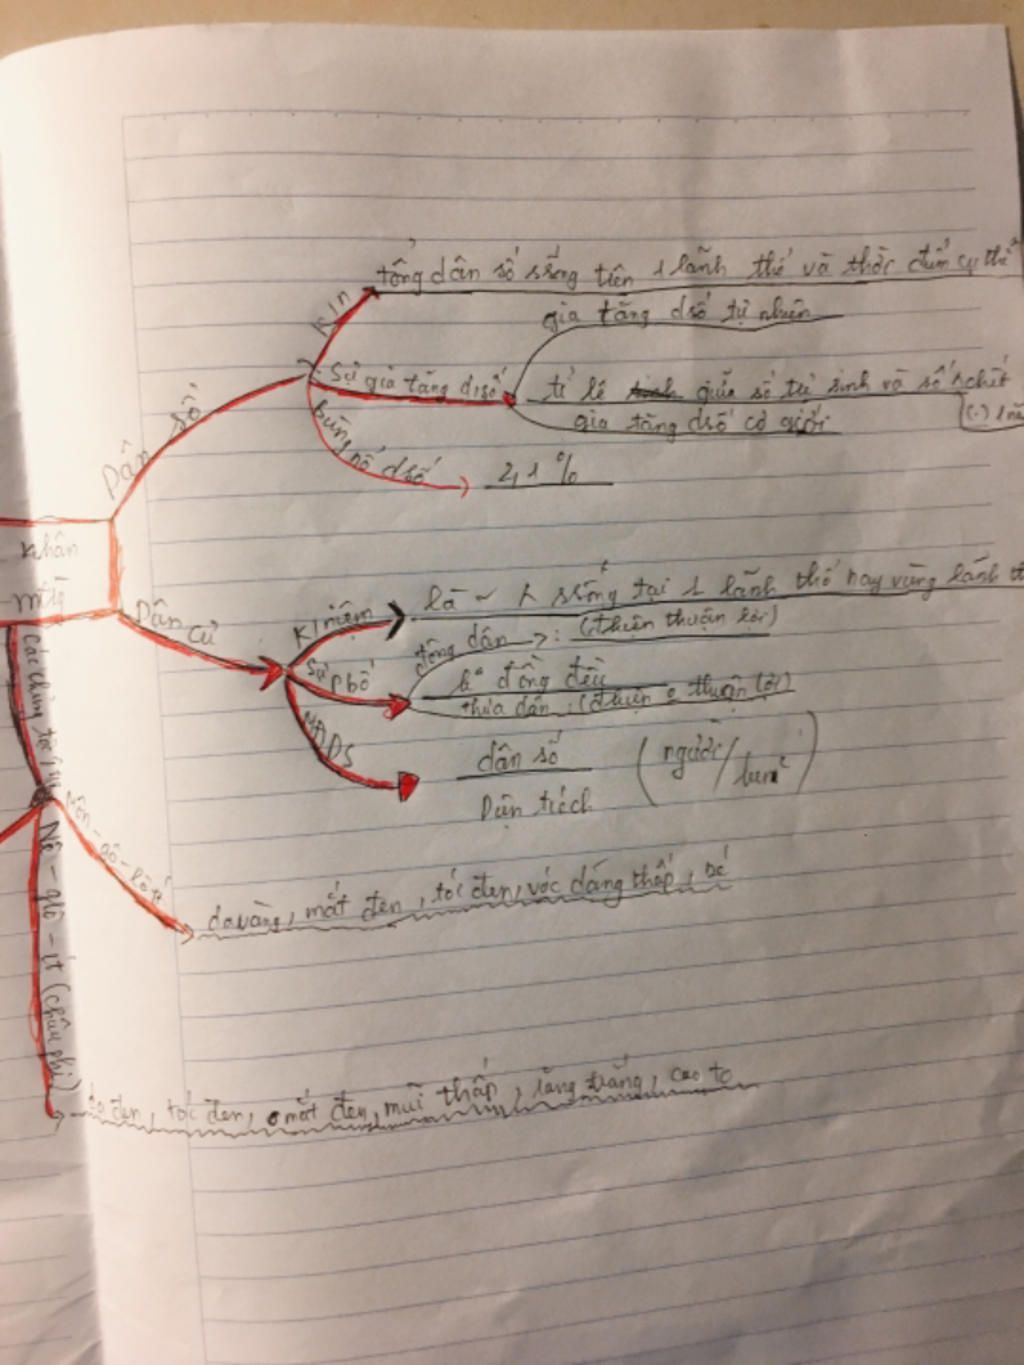 tổng dân số sống trên 1 lãnh thổ và thời điểm cụ thể
K/n
gia tăng dsố tự nhiên
Sự gia tăng d.số
tỉ lệ giữa số trẻ sinh và số chết
(.) 1 nă
gia tăng dsố cơ giới
Dân số
bùng nổ dsố
2,1 %
nhân
Dân cư
K/niệm
là ~ sống tại 1 lãnh thổ hay vùng lãnh t
đông dân : (đ.kiện thuận lợi)
Sự pbố
k° đồng đều
thưa dân : (đ.kiện 0 thuận lợi)
MĐDS
dân số
(người/km²)
Diện tích
Các chủng tộc
Môn-gô-lô-ít
da vàng, mắt đen, tóc đen, vóc dáng thấp, bé
Nê-grô-ít (châu phi)
da đen, tóc đen, mắt đen, mũi thấp, răng trắng, cao to